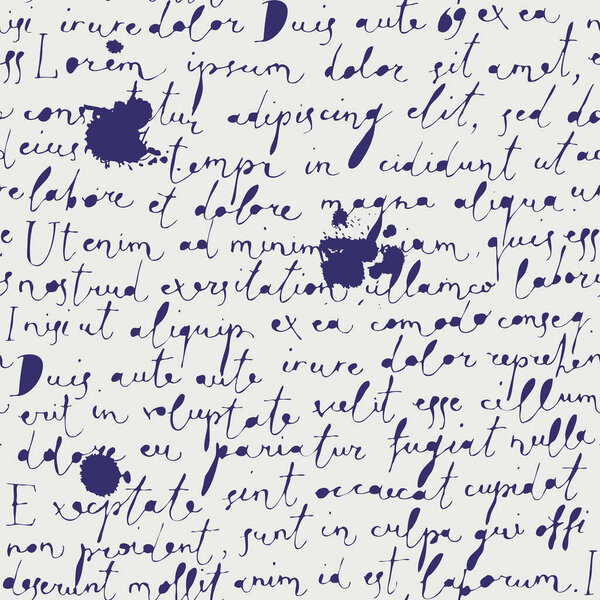 nisi irure dolor Duis aute ex ea n
ss Lorem ipsum dolor sit amet, e
cons tur adipiscing elit, sed do
d eius tempi in cididunt ut ac
re labore et dolore magna aliqua un
e Ut enim ad minim niam, quis ess
s nostrud exersitation ullamco labory
I nisi ut aliquip ex ea comodo conseq.
Duis aute aute irure dolor reprehen
erit in voluptate velit esse cillum
dolore eu pariatur fugiat nulla.
E xecptate sint occaecat cupidat
non proident, sunt in culpa qui offi
deserunt mollit anim id est, laborum. I